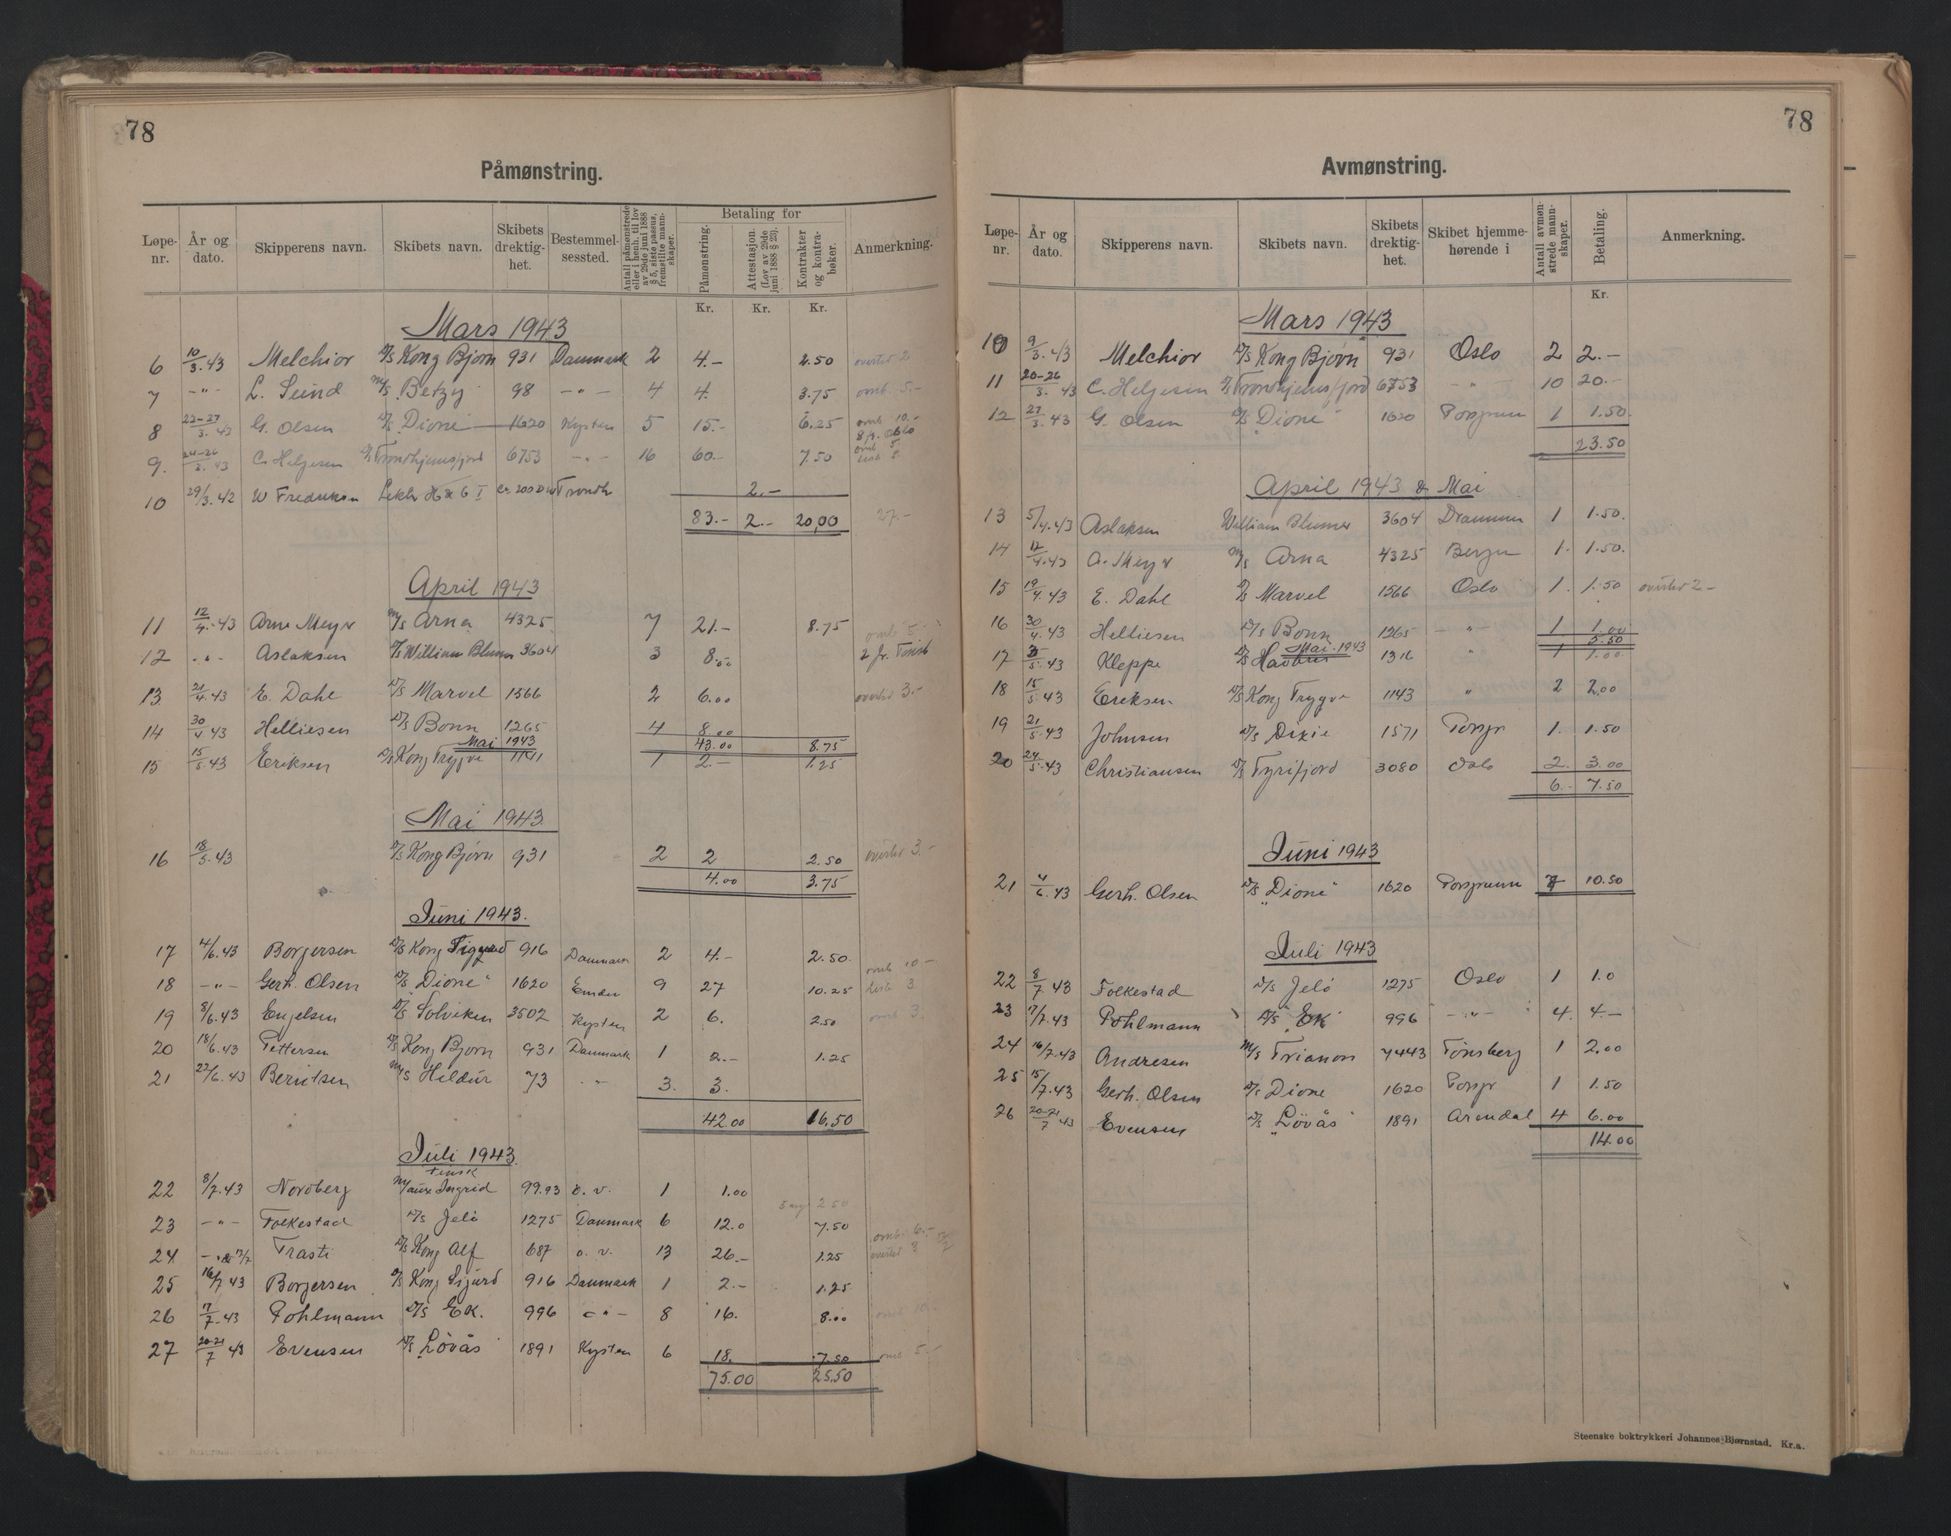 78
Påmønstring.
Løpe-nr. År og dato. Skipperens navn. Skibets navn. Skibets drektig-het. Bestemmel-sessted. Antall påmønstrede eller i henh. til lov av 29de juni 1888 § 5, siste passus, fremstilte mann-skaper. Betaling for Påmønstring. Attestasjon. (Lov av 29de juni 1888 § 23). Kontrakter og kontra-bøker. Anmerkning.
Kr. Kr. Kr.
Mars 1943
6 10/3.43 Melchior D/S Kong Bjørn 931 Danmark 2 4.- 2.50 overtid 2
7 -"- L. Seind M/S Betzy 98 -"- 4 4. 3.75 omb. 5.-
8 22-27/3.43 G. Olsen D/S Dione 1620 Kysten 5 15.- 6.25 omb 10.-
9. 24-26/3.43 C. Helgesen D/S Trondhjemsfjord 6753 -"- 16 60.- 7.50
10 29/3.42 W Fredriksen Lekter 200 Trondh 2.-
83.- 2.- 20,00 27.-
April 1943
11 12/4.43 Arne Meyer M/S Arna 4325 7 21.- 8.75 omb 5.-
12 "." Aslaksen D/S William Blumer 3604 3 8.00
13 21/4.43 E. Dahl D/S Marvel 1566 2 6.00 overtid 3.-
14 30/4.43 Helliesen D/S Bonn 1265 4 8.00
43.00 8.75
Mai 1943
15 15/5.43 Eriksen D/S Kong Trygve 1141 1 2.- 1.25
Mai 1943.
16 18/5.43 D/S Kong Bjørn 931 2 2 2.50 overtid 3.-
4.00 3.75
Juni 1943.
17 4/6.43 Borgersen D/S Kong Sigurd 916 Danmark 2 4.- 2.50
18 -"- Gerh. Olsen D/S "Dione" 1620 Emden 9 27 10.25 omb 10.-
19 8/6.43 Engelsen D/S Solviken 3502 Kysten 2 6. 2.50 omb 3.
20 18/6.43 Pettersen D/S Kong Bjørn 931 Danmark 1 2.- 1.25
21 22/6.43 Berntsen M/S Hildur 73 "." 3. 3.
42.00 16.50
Juli 1943.
22 8/7.43 Nordberg Ingrid 99.93 o.v. 1 1.00
23 -"- Folkestad D/S Jelö 1275 Danmark 6 12.0 7.50 omb. 6.-
24 Trasti D/S Kong Alf 687 o.v. 13 26.- 1.25 overtid 3
25 16/7 43 Borgersen D/S Kong Sigurd 916 Danmark 1 2.- 1.25
26 7/7.43 Pohlmann D/S Ek. 996 -"- 8 16. 8.00
27 20-21/7 43 Evensen D/S Lövås 1891 Kysten 6 18. 7.50 omb 5.-
75.00 25.50
78
Avmønstring.
Løpe-nr. År og dato. Skipperens navn. Skibets navn. Skibets drektig-het. Skibet hjemme-hørende i Antall avmøn-strede mann-skaper. Betaling. Anmerkning.
Kr.
Mars 1943
10 9/3.43 Melchior D/S Kong Bjørn 931 Oslo 2 2.-
11 20-26/3.43 C. Helgesen D/S Trondhjemsfjord 6753 -"- 10 20.-
12 27/3.43 G. Olsen D/S Dione 1620 Porsgrunn 1 1.50
23.50
April 1943 & Mai
13 5/4.43 Aslaksen William Blumer 3604 Drammen 1 1.50.
14 12/4.43 A. Meyer M/S Arna 4325 Bergen 1. 1.50.
15 19/4.43 E. Dahl D/S Marvel 1566 Oslo 1. 1.50 overtid 2-
16 30/4.43 Helliesen D/S Bonn 1265 -"- 1 1.00
5.50
Mai. 1943
17 5/5.43 Kleppe D/S Havbris 1316 " 1 1.00
18 15/5.43 Eriksen D/S Kong Trygve 1143 " 2 2.00
19 21/5.43 Johnsen D/S Dixie 1571 Porsgr 1. 1.50
20 24/5.43 Christiansen D/S Tyrifjord 3080 Oslo 2. 3.00
6.- 7.50
Juni 1943
21 4/6.43 Gerh. Olsen D/S "Dione" 1620 Porsgrunn 7 10.50
Juli 1943
22 8/7 43 Folkestad D/S Jelö 1275 Oslo 1 1.0
23 7/7.43 Pohlmann D/S "EK" 996 -"- 4. 4.-
24 16/7.43 Andresen M/S Trianon 7443 Tönsberg 1 2.00
25 15/7.43 Gerh. Olsen D/S Dione 1620 Porsgr 1 1.50
26 20-21/7 43 Evensen D/S "Lövås" 1891 Arendal 4 6.00
14.00
Steenske boktrykkeri Johannes Bjørnstad. Kr.a.